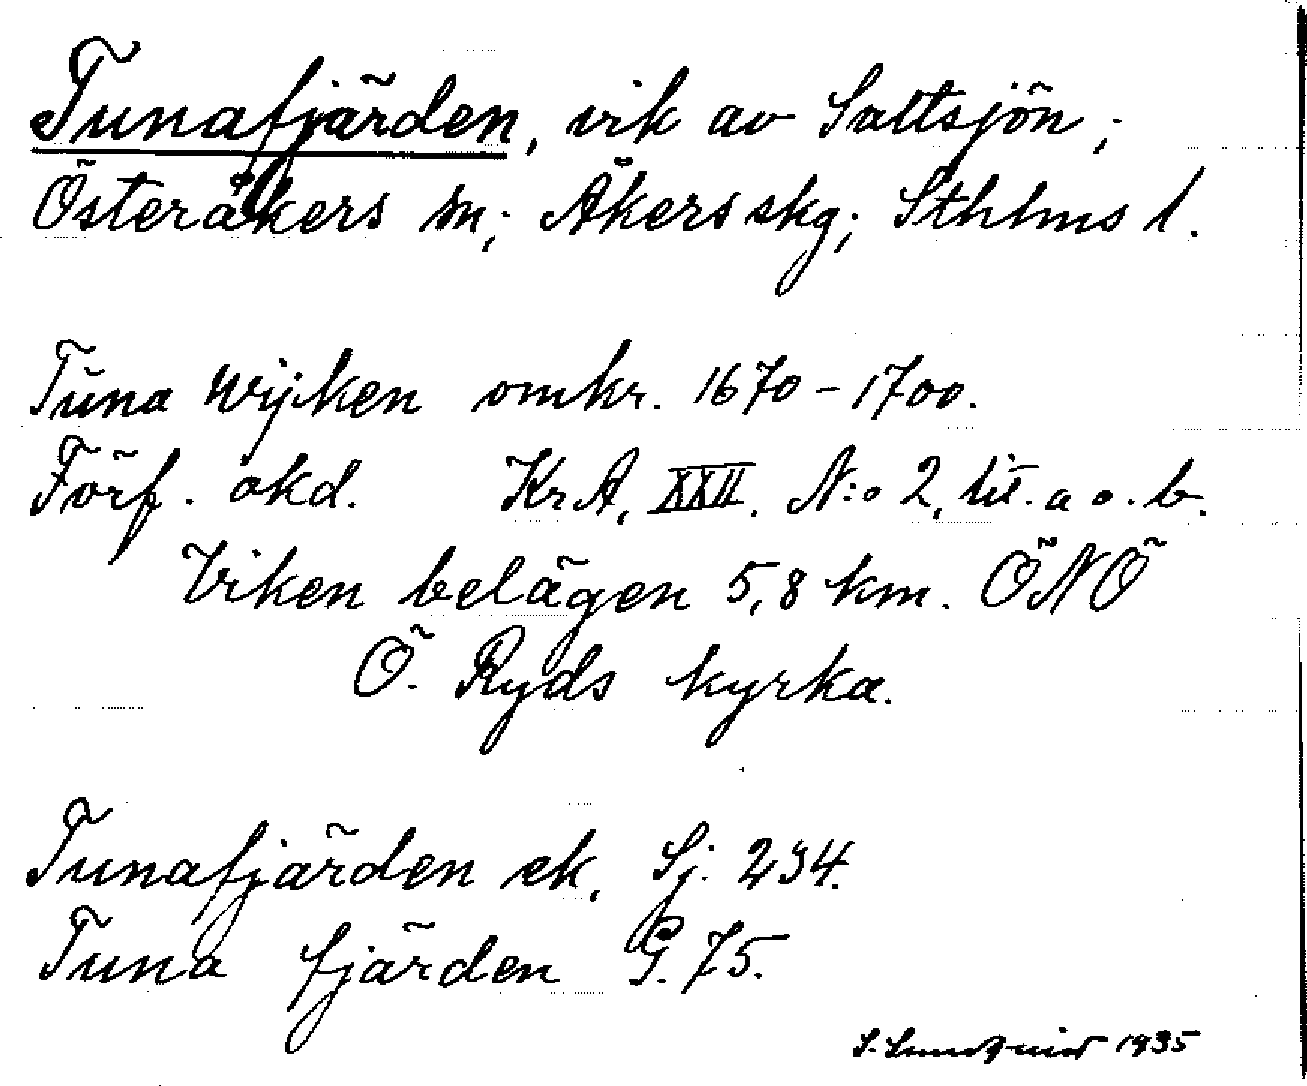 Tunafjärden, vik av Saltsjön;
Österåkers sn; Åkers skg; Sthlms l.
Tŭna Wijken omkr. 1670-1700.
Förf. okd. KrA, XXII. N:o 2, lit. a o. b.
Viken belägen 5,8 km. ÖNÖ
Ö. Ryds kyrka.
Tunafjärden ek. Sj. 234.
Tuna fjärden G. 75.
S. Lundqvist 1935